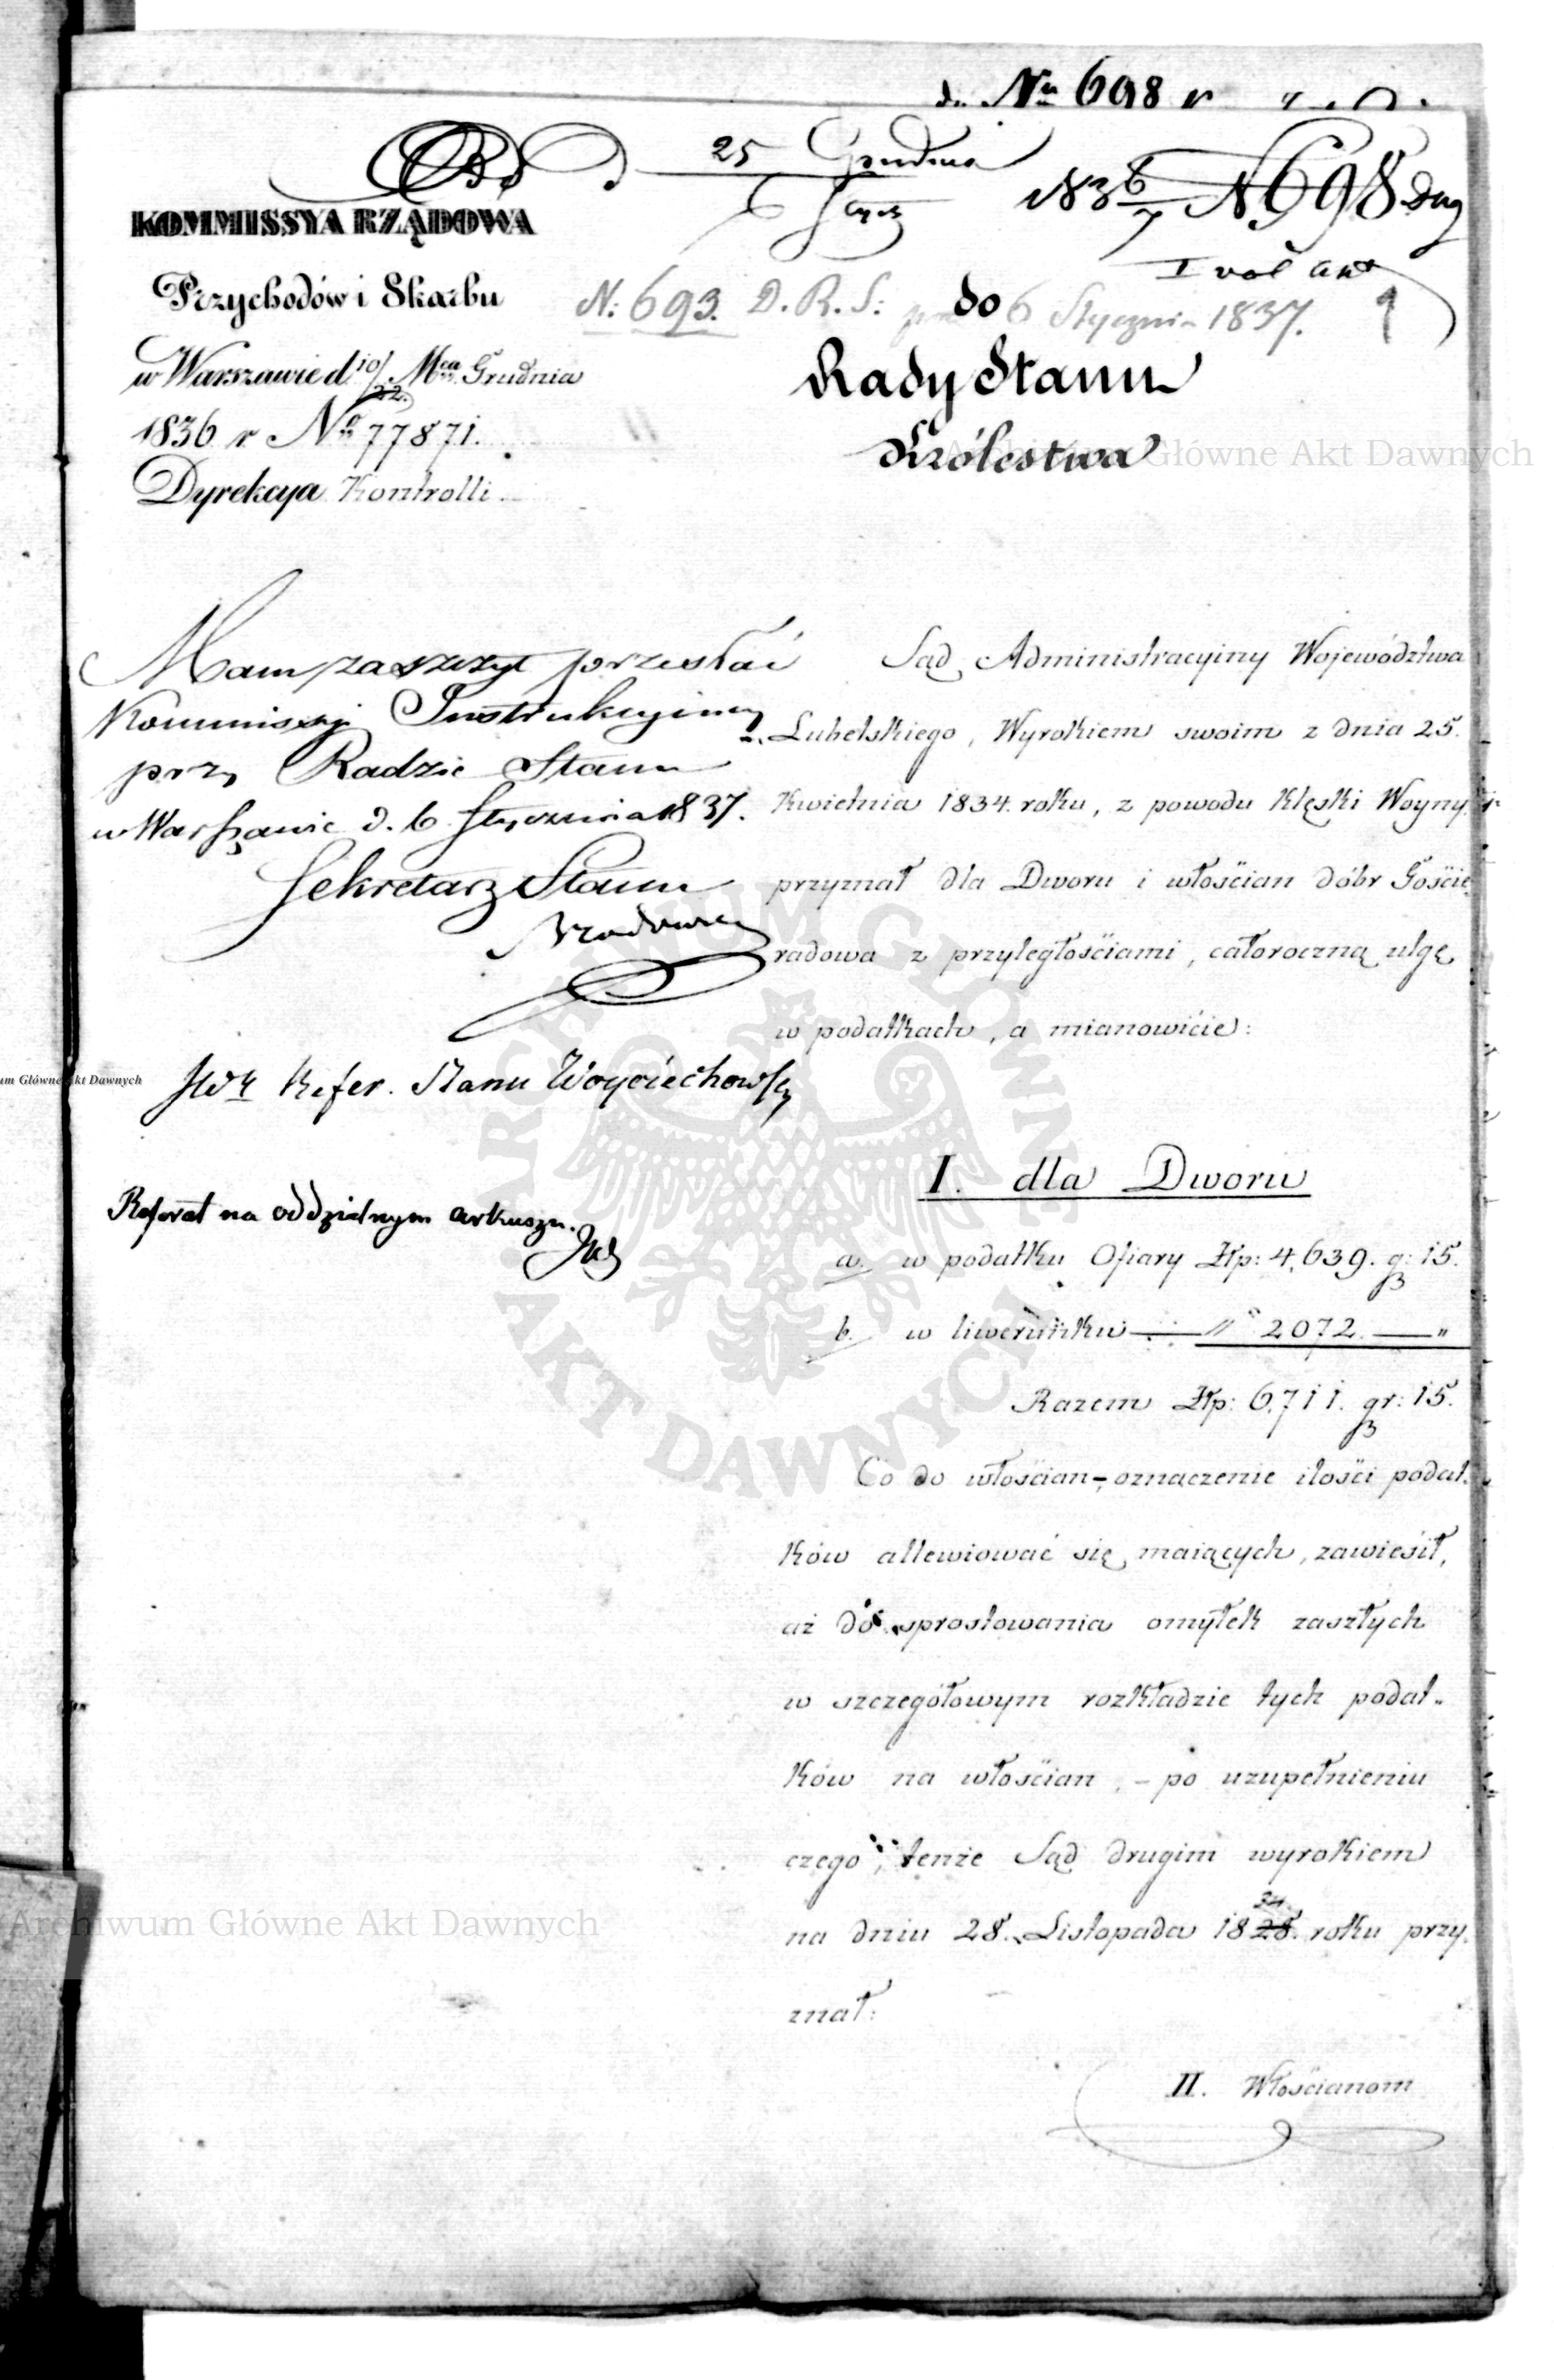 do Nru 698 r
25 Grudnia
6 Stycz
1836/7 N 698 Dng
I vol akt
KOMMISSYA RZĄDOWA
Przychodów i Skarbu
N: 693. D.R.S: 6 Stycznia 1837.
9
do
w Warszawie d. 10/22. Mca Grudnia
Rady Stanu
1836 r No 77871.
Królestwa
Dyrekcya Kontrolli
Mam zaszczyt przesłać
Kommissyi Instrukcyiney
przy Radzie Stanu
w Warszawie d. 6 Stycznia 1837.
Sekretarz Stanu
JWu Refer. Stanu Woyciechowski
Referat na oddzielnym arkuszu.
Sąd Administracyiny Województwa
Lubelskiego, Wyrokiem swoim z dnia 25.
Kwietnia 1834. roku, z powodu klęski Woyny
przyznał dla Dworu i włościan dóbr Goście
radowa z przyległościami, całoroczną ulgę
w podatkach, a mianowicie:
I. dla Dworu
a. w podatku Ofiary Złp: 4,639. g: 15.
b. w liwerunku " 2072. — "
Razem Złp: 6,711. gr: 15.
Co do włościan, oznaczenie ilości podat.
ków allewiować się maiących, zawiesił,
aż do sprostowania omyłek zaszłych
w szczegółowym rozkładzie tych podat-
ków na włościan, – po uzupełnieniu
czego, tenże Sąd drugim wyrokiem
na dniu 28. Listopada 1828. 34 roku przy
znał:
II. Włościanom
Archiwum Główne Akt Dawnych
um Główne Akt Dawnych
ARCHIWUM GŁÓWNE AKT DAWNYCH
Archiwum Główne Akt Dawnych